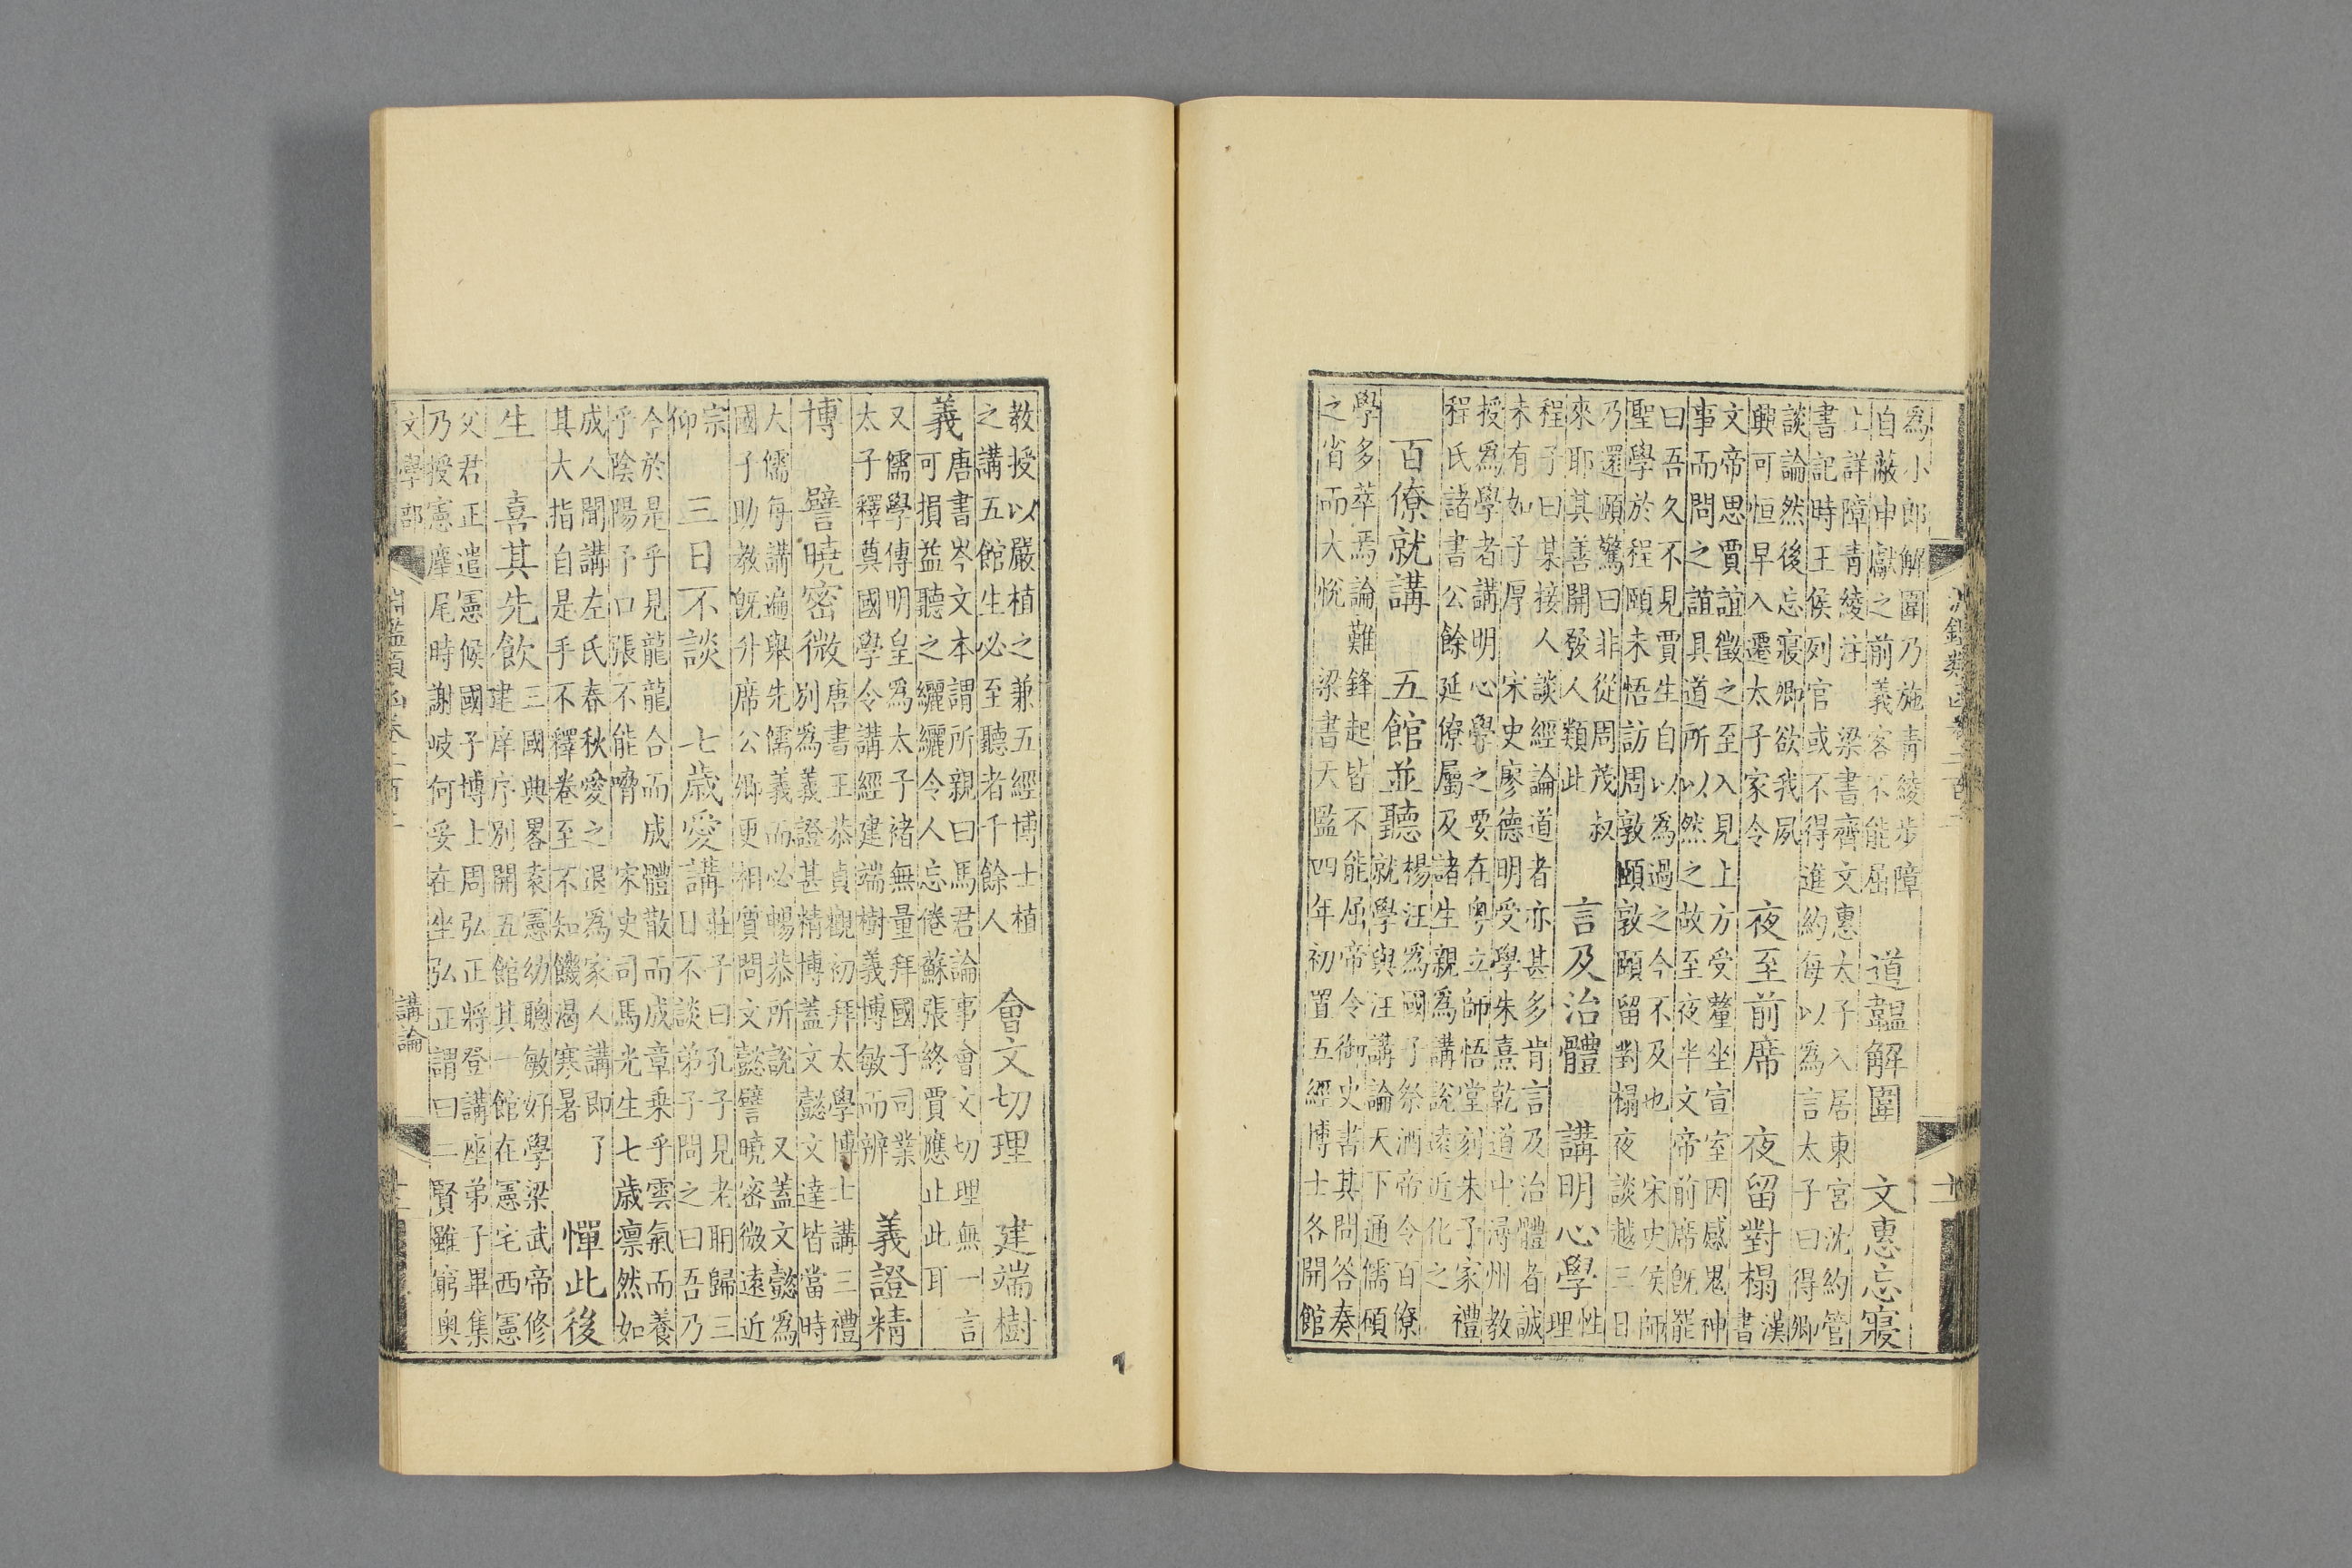 淵鑑類函卷二百
為小郎解圍乃施青綾步障
自蔽申獻之前義客不能屈
道韞解圍 文惠忘寢
上詳障青綾注 梁書齊文惠太子入居東宮沈約管
書記時王侯列官或不得進約每以為言太子曰得卿
談論然後忘寢卿欲我夙
興可恒早入遷太子家令
夜至前席 夜留對榻
漢
書
文帝思賈誼徵之至入見上方受釐坐宣室因感鬼神
事而問之誼具道所以然之故至夜半文帝前席既罷
曰吾久不見賈生自以為過之今不及也 宋史侯師
聖學於程頤未悟訪周敦頤敦頤留對榻夜談越三日
乃還頤驚曰非從周茂叔
來耶其善開發人類此
言及治體 講明心學
性
理
程子曰某接人談經論道者亦甚多肯言及治體者誠
未有如子厚 宋史廖德明受學朱熹乾道中潯州教
授為學者講明心學之要在粵立師悟堂刻朱子家禮
程氏諸書公餘延僚屬及諸生親為講說遠近化之
百僚就講 五館並聽
楊汪為國子祭酒帝令百僚
就學與汪講論天下通儒碩
學多萃焉論難鋒起皆不能屈帝令御史書其問答奏
之省而大悅 梁書天監四年初置五經博士各開館
教授以嚴植之兼五經博士植
之講五館生必至聽者千餘人
會文切理 建端樹
義
唐書岑文本謂所親曰馬君論事會文切理無一言
可損益聽之纚纚令人忘倦蘇張終賈應止此耳
又儒學傳明皇為太子褚無量拜國子司業
太子釋奠國學令講經建端樹義博敏而辨
義證精
博 譬曉密微
唐書王恭貞觀初拜太學博士講三禮
別為義證甚精博蓋文懿文達皆當時
大儒每講遍舉先儒義而必暢恭所說 又蓋文懿為
國子助教既升席公卿更相質問文懿譬曉密微遠近
宗
仰
三日不談 七歲愛講
莊子曰孔子見老聃歸三
日不談弟子問之曰吾乃
今於是乎見龍龍合而成體散而成章乘乎雲氣而養
乎陰陽予口張不能嚌 宋史司馬光生七歲凛然如
成人聞講左氏春秋愛之退為家人講即了
其大指自是手不釋卷至不知饑渴寒暑
憚此後
生 喜其先飲
三國典畧袁憲幼聰敏好學梁武帝修
建庠序別開五館其一館在憲宅西憲
父君正遣憲候國子博士周弘正將登講座弟子畢集
乃授憲麈尾時謝岐何妥在坐弘正謂曰二賢雖窮奧
文學部
淵鑑類函卷二百
講論